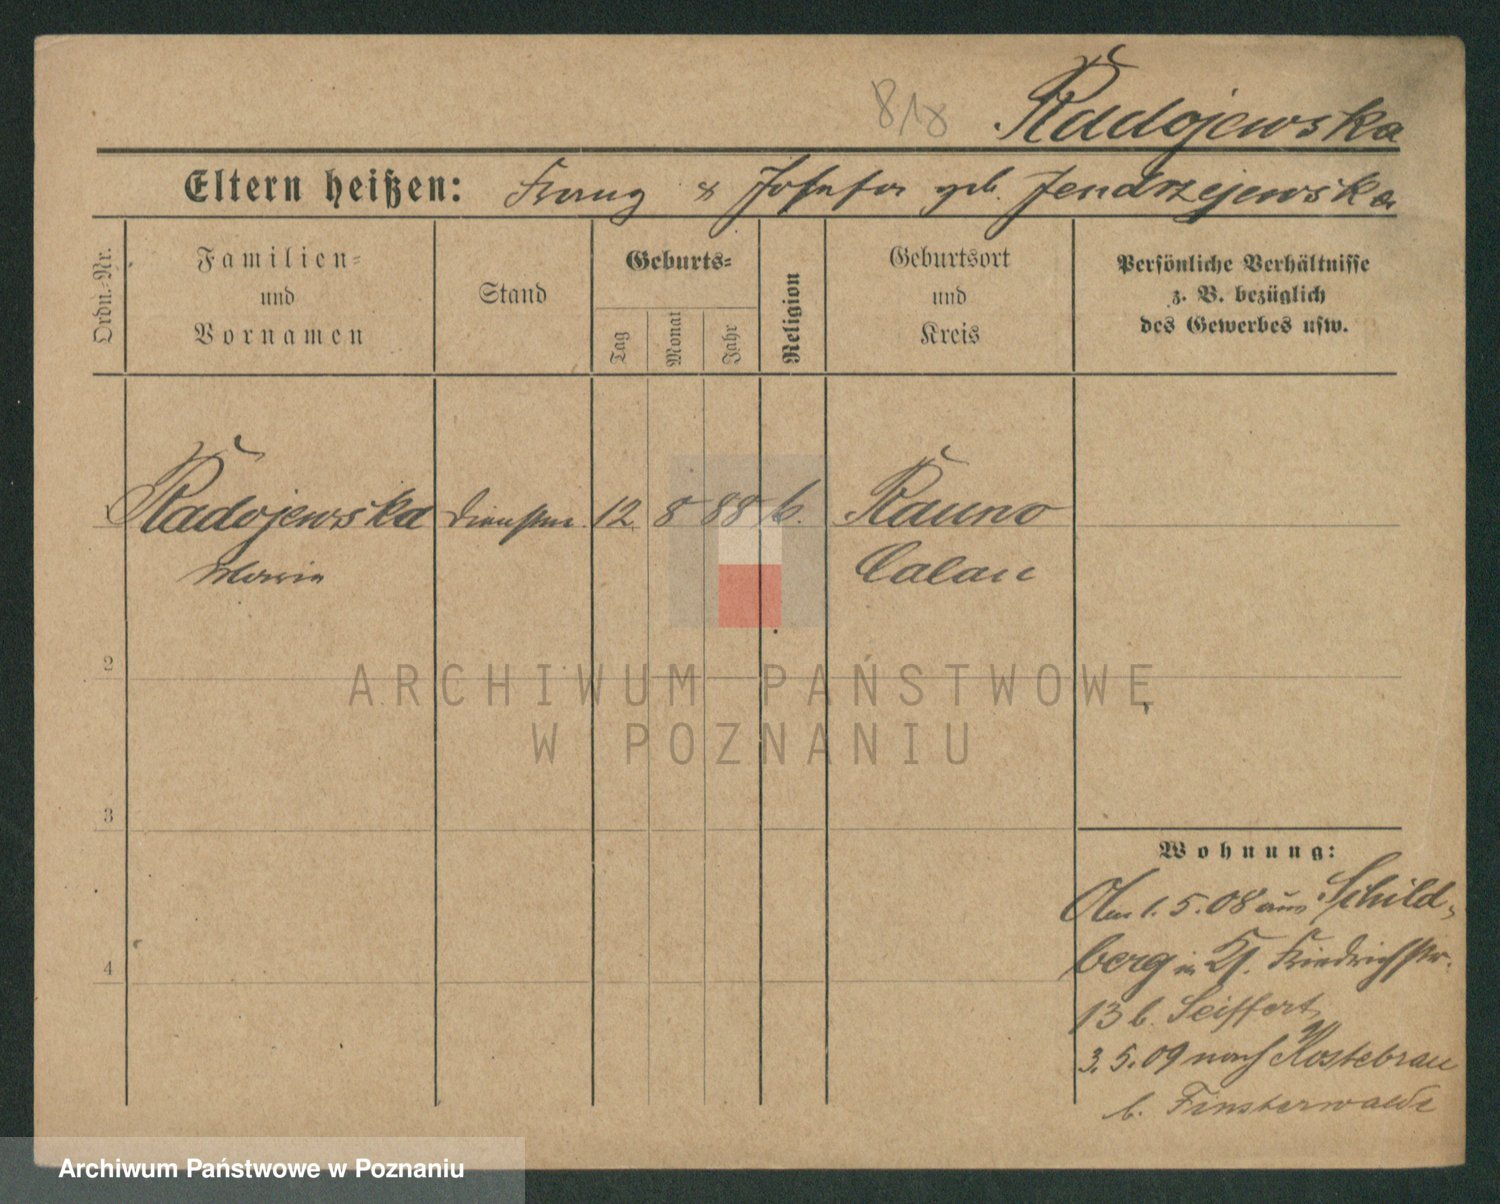 818
Radojewska
Eltern heißen: Franz & Josefa geb. Jendrzejewska
Ordn.-Nr.
Familien- und Vornamen
Stand
Geburts-
Tag
Monat
Jahr
Religion
Geburtsort und Kreis
Persönliche Verhältnisse z. B. bezüglich des Gewerbes usw.
1 Radojewska Dienstm. 12. 8 88 k. Rauno
Maria Calau
2
3
4
Wohnung:
Am 1. 5. 08 aus Schild-
berg in Kl. Friedrichstr.
13 b. Seiffert
3. 5. 09 nach Kostebrau
b. Finsterwalde
ARCHIWUM PAŃSTWOWE
W POZNANIU
Archiwum Państwowe w Poznaniu